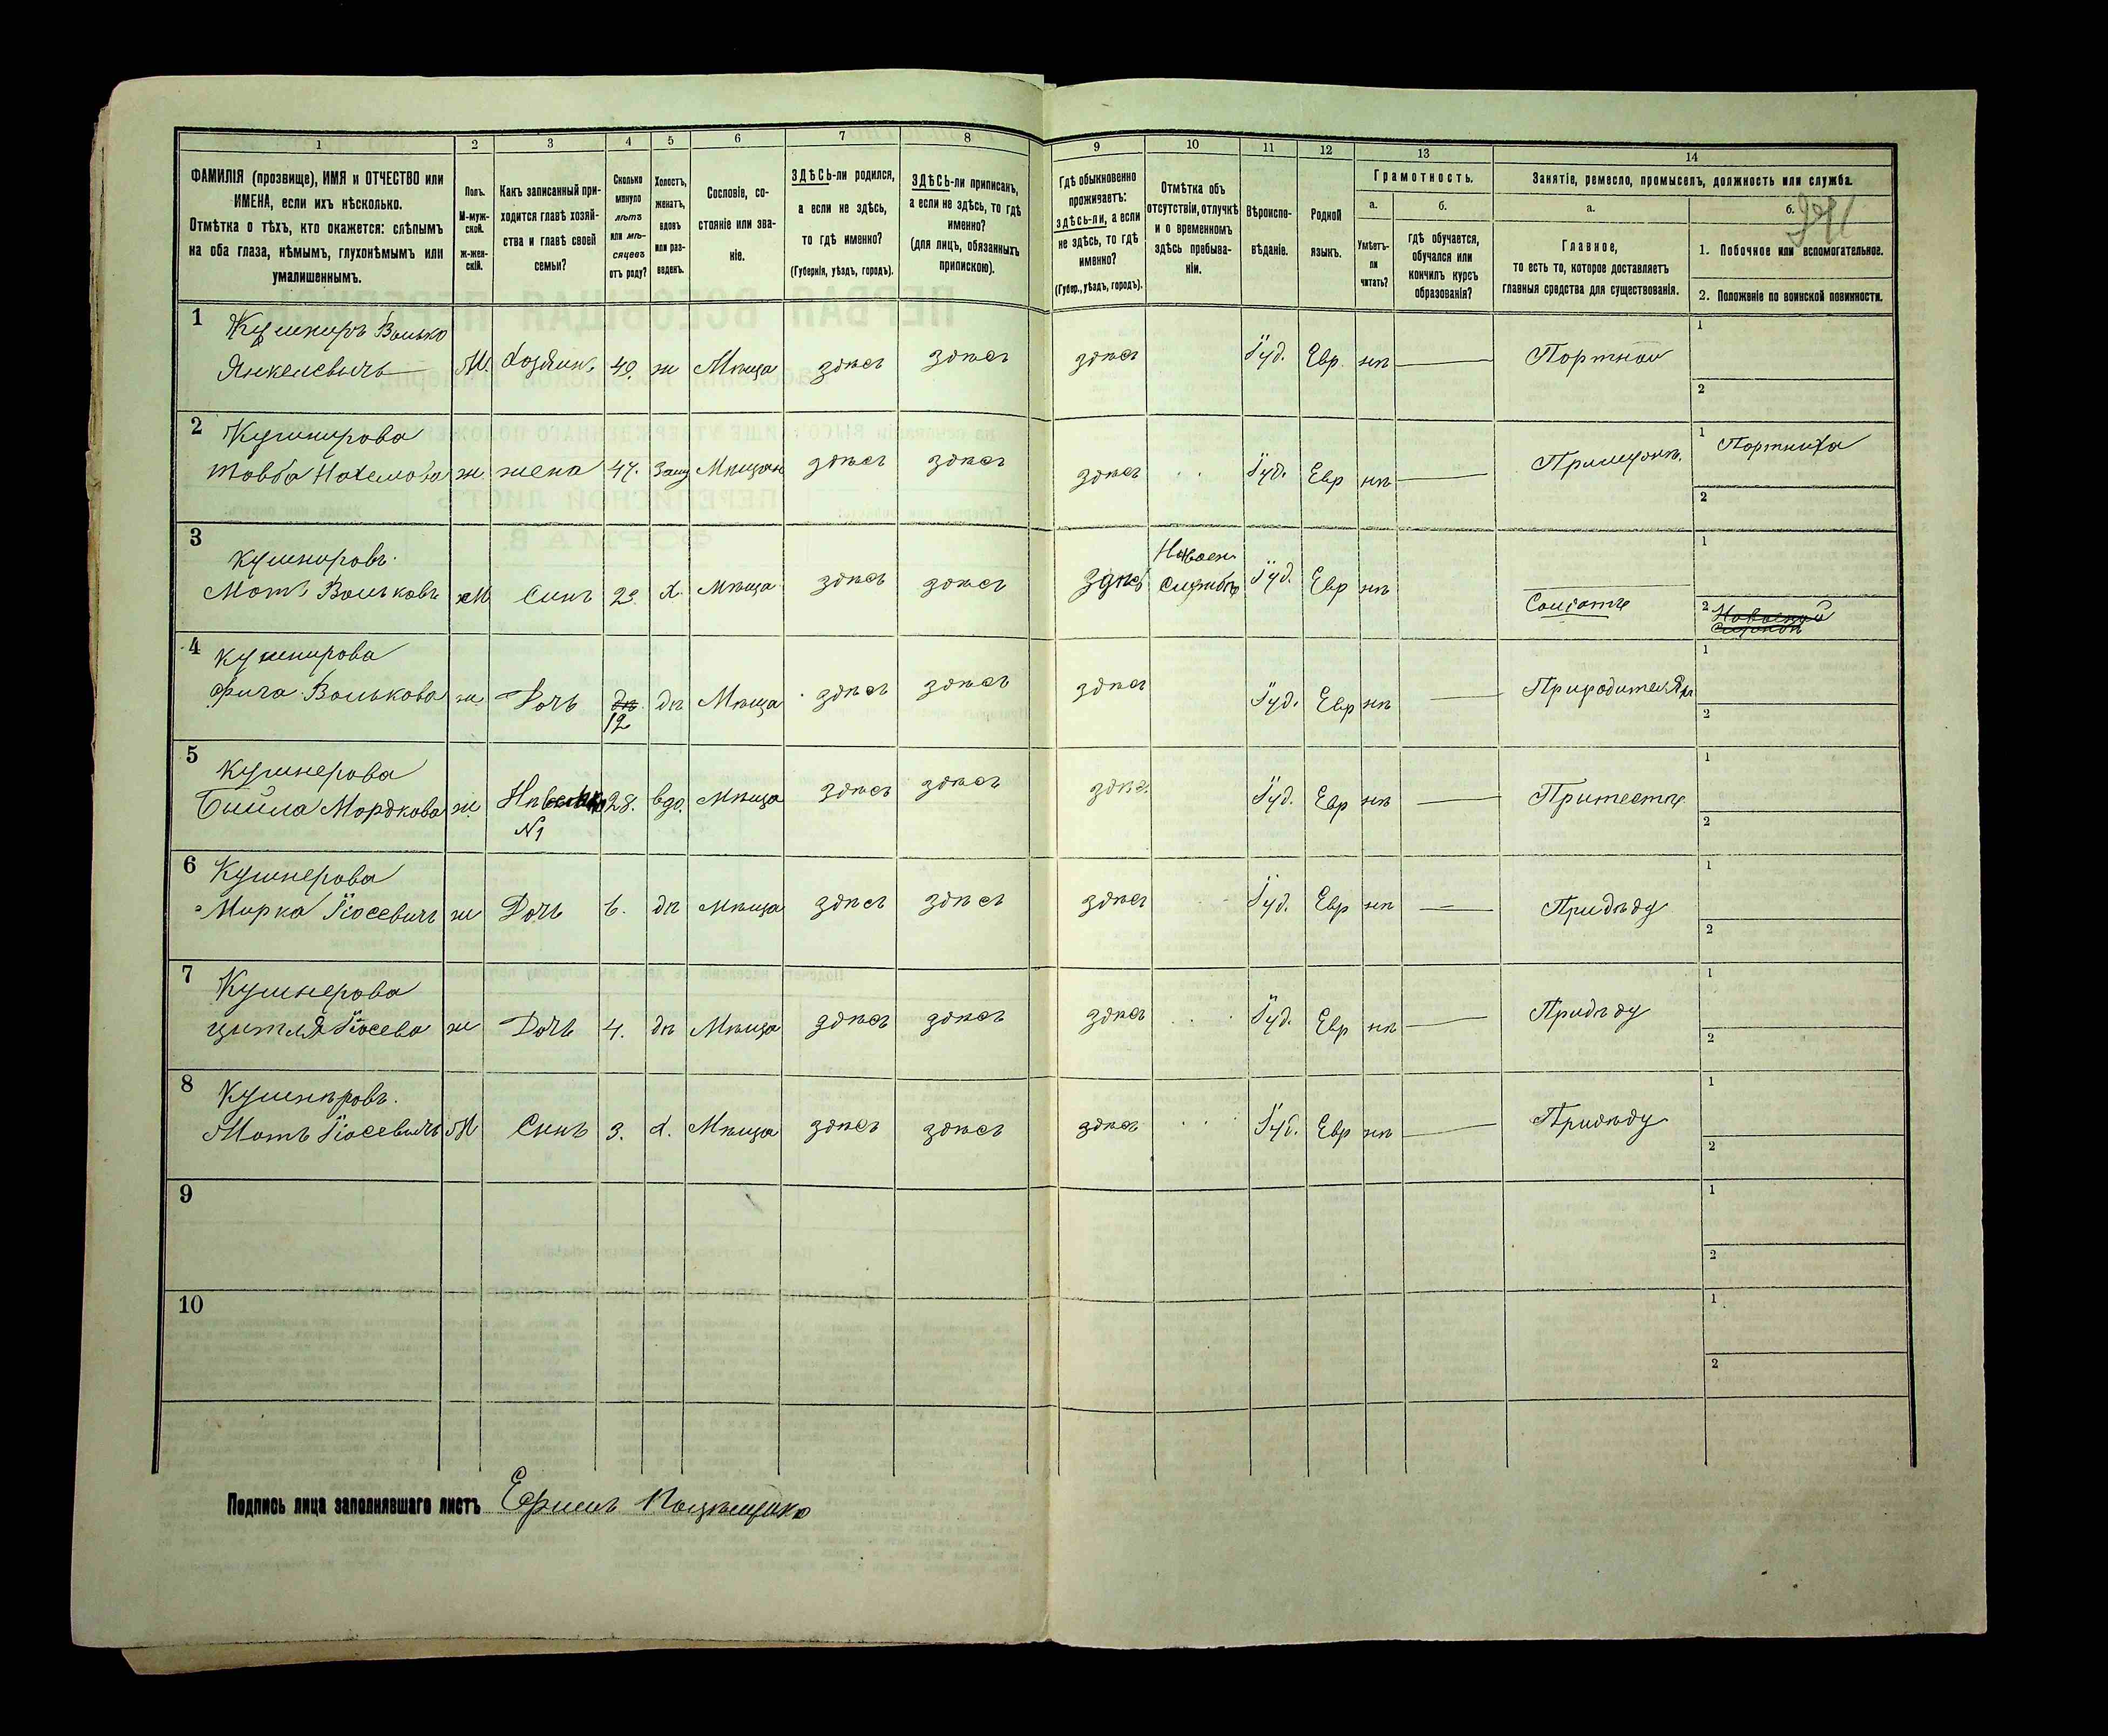 1 2 3 4 5 6 7 8 9 10 11 12 13 14
ФАМИЛІЯ (прозвище), ИМЯ и ОТЧЕСТВО или
ИМЕНА, если ихъ нѣсколько.
Отмѣтка о тѣхъ, кто окажется: слѣпымъ
на оба глаза, нѣмымъ, глухонѣмымъ или
умалишеннымъ.
Полъ.
М-муж-
ской.
ж-жен-
скій.
Какъ записанный при-
ходится главѣ хозяй-
ства и главѣ своей
семьи?
Сколько
минуло
лѣтъ
или мѣ-
сяцевъ
отъ роду?
Холостъ,
женатъ,
вдовъ
или раз-
веденъ.
Сословіе, со-
стояніе или зва-
ніе.
ЗДѢСЬ-ли родился,
а если не здѣсь,
то гдѣ именно?
(Губернія, уѣздъ, городъ).
ЗДѢСЬ-ли приписанъ,
а если не здѣсь, то гдѣ
именно?
(для лицъ, обязанныхъ
припискою).
Гдѣ обыкновенно
проживаетъ:
здѣсь-ли, а если
не здѣсь, то гдѣ
именно?
(Губер., уѣздъ, городъ).
Отмѣтка объ
отсутствіи, отлучкѣ
и о временномъ
здѣсь пребыва-
ніи.
Вѣроиспо-
вѣданіе.
Родной
языкъ.
Грамотность.
а. б.
Умѣетъ-
ли
читать?
гдѣ обучается,
обучался или
кончилъ курсъ
образованія?
Занятіе, ремесло, промыселъ, должность или служба.
а. б.
Главное,
то есть то, которое доставляетъ
главныя средства для существованія.
1. Побочное или вспомогательное.
2. Положеніе по воинской повинности.
1 Кушниръ Волько
Янкелевичъ М. Хозяин. 49. ж Мѣща здѣсь здѣсь здѣсь Іуд. Евр нѣ Портной
1
2
2 Кушнирова
Товба Нахемова ж. жена 47. Зам Мѣщан здѣсь здѣсь здѣсь Іуд. Евр нѣ Примужѣ.
1 Портниха
2
3 Кушнировъ.
Мотъ Вольковъ М Синъ 22 Х. Мѣща здѣсь здѣсь здѣсь Навоен. Службѣ Іуд. Евр нѣ Солдатъ
1
2
4 Кушнирова
Фига Волькова ж. Дочь 12 дѣ Мѣща здѣсь здѣсь здѣсь Іуд. Евр нѣ Природителяхъ
1
2
5 Кушнерова
Бейла Мордкова ж. Нѣвестка 28. вдо. Мѣща здѣсь здѣсь здѣсь Іуд. Евр нѣ Притесте
N1
1
2
6 Кушнерова
Мирка Іосевичъ ж Дочь 6. дѣ Мѣща здѣсь здѣсь здѣсь Іуд. Евр нѣ Придѣду
1
2
7 Кушнерова
Цытля Іосева ж Дочь 4. дѣ Мѣща здѣсь здѣсь здѣсь Іуд. Евр нѣ Придѣду
1
2
8 Кушнѣровъ.
Мотъ Іосевичъ М Синъ 3. Х. Мѣща здѣсь здѣсь здѣсь Іуд. Евр нѣ Придѣду
1
2
9
1
2
10
1
2
Подпись лица заполнявшаго листъ